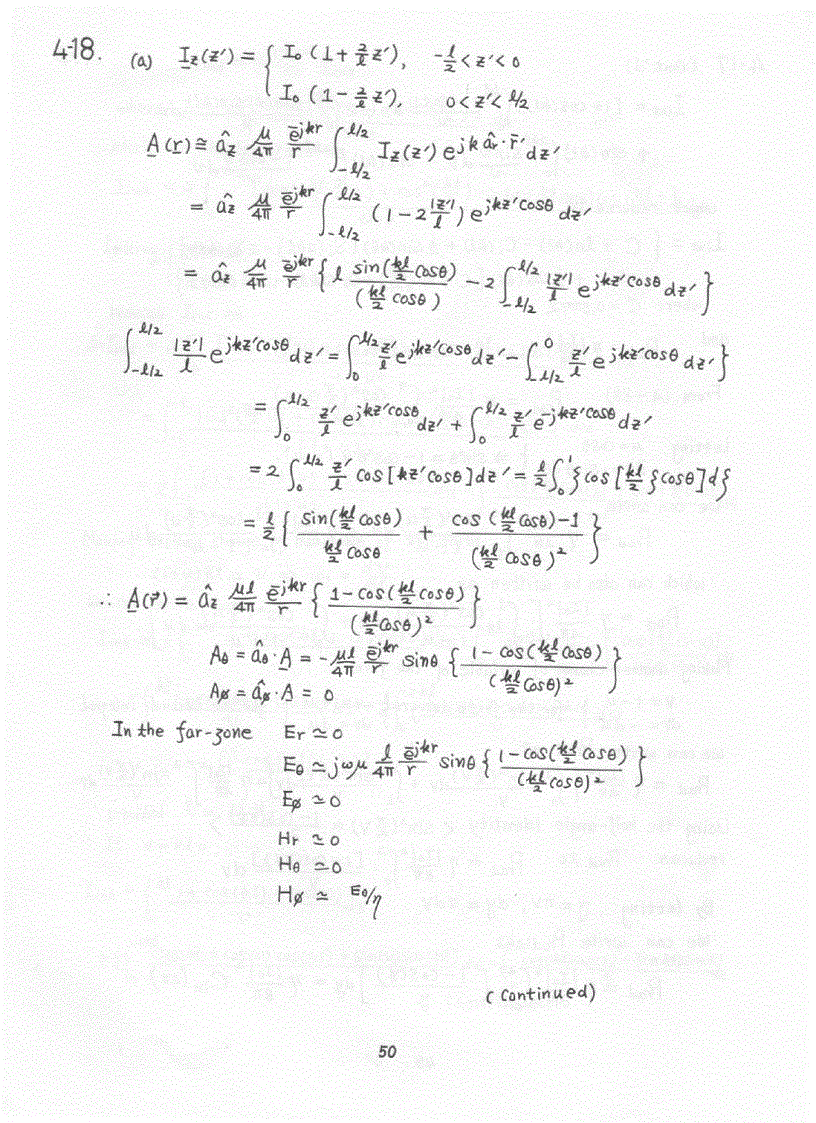 4-18. (a) I_z(z') = { I₀ (1 + 2/l z'), -l/2 < z' < 0
I₀ (1 - 2/l z'), 0 < z' < l/2
A(r) ≅ â_z μ/4π e^{-jkr}/r ∫_{-l/2}^{l/2} I_z(z') e^{jk â_r · r̄'} dz'
= â_z μ/4π e^{-jkr}/r ∫_{-l/2}^{l/2} (1 - 2 |z'|/l) e^{jkz'cosθ} dz'
= â_z μ/4π e^{-jkr}/r { l sin(kl/2 cosθ)/(kl/2 cosθ) - 2 ∫_{-l/2}^{l/2} |z'|/l e^{jkz'cosθ} dz' }
∫_{-l/2}^{l/2} |z'|/l e^{jkz'cosθ} dz' = ∫_0^{l/2} z'/l e^{jkz'cosθ} dz' - ∫_{-l/2}^0 z'/l e^{jkz'cosθ} dz' }
= ∫_0^{l/2} z'/l e^{jkz'cosθ} dz' + ∫_0^{l/2} z'/l e^{-jkz'cosθ} dz'
= 2 ∫_0^{l/2} z'/l cos[kz'cosθ] dz' = l/2 ∫_0^1 ξ cos[kl/2 ξ cosθ] dξ
= l/2 { sin(kl/2 cosθ)/(kl/2 cosθ) + (cos(kl/2 cosθ) - 1)/(kl/2 cosθ)² }
∴ A(r⃗) = â_z μl/4π e^{-jkr}/r { (1 - cos(kl/2 cosθ))/(kl/2 cosθ)² }
A_θ = â_θ · A = - μl/4π e^{-jkr}/r sinθ { (1 - cos(kl/2 cosθ))/(kl/2 cosθ)² }
A_ø = â_ø · A = 0
In the far-zone E_r ≃ 0
E_θ ≃ jωμ l/4π e^{-jkr}/r sinθ { (1 - cos(kl/2 cosθ))/(kl/2 cosθ)² }
E_ø ≃ 0
H_r ≃ 0
H_θ ≃ 0
H_ø ≃ E_θ/η
(Continued)
50